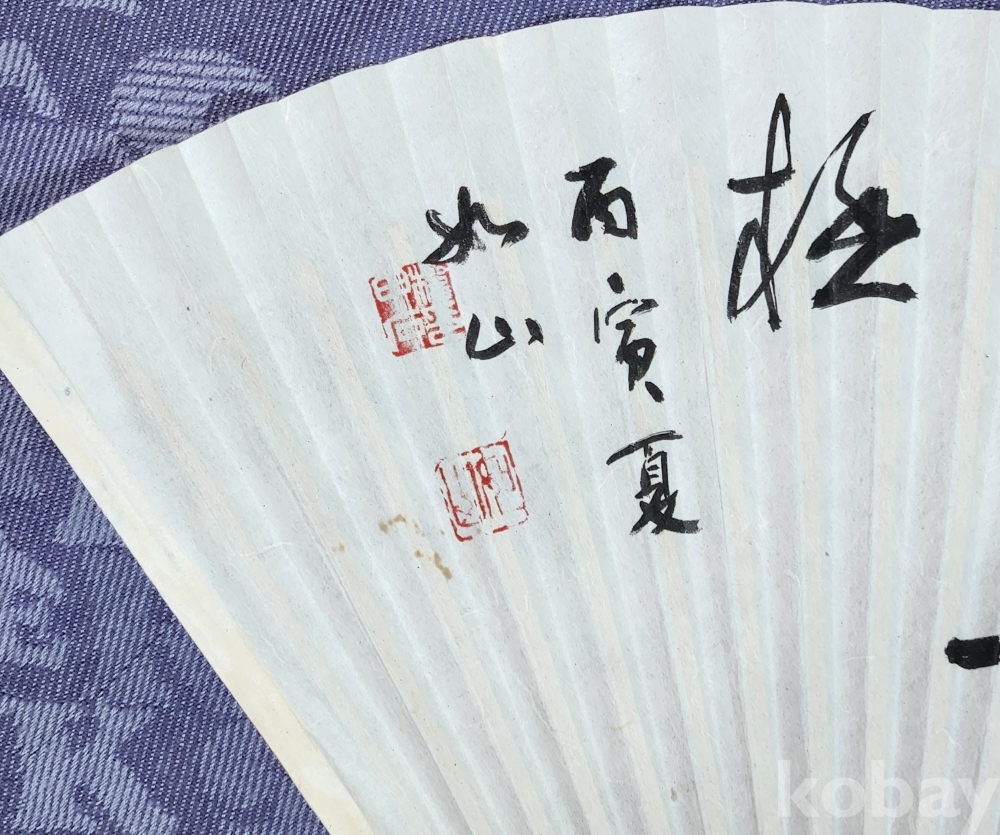 極
丙寅夏
如山
kobay